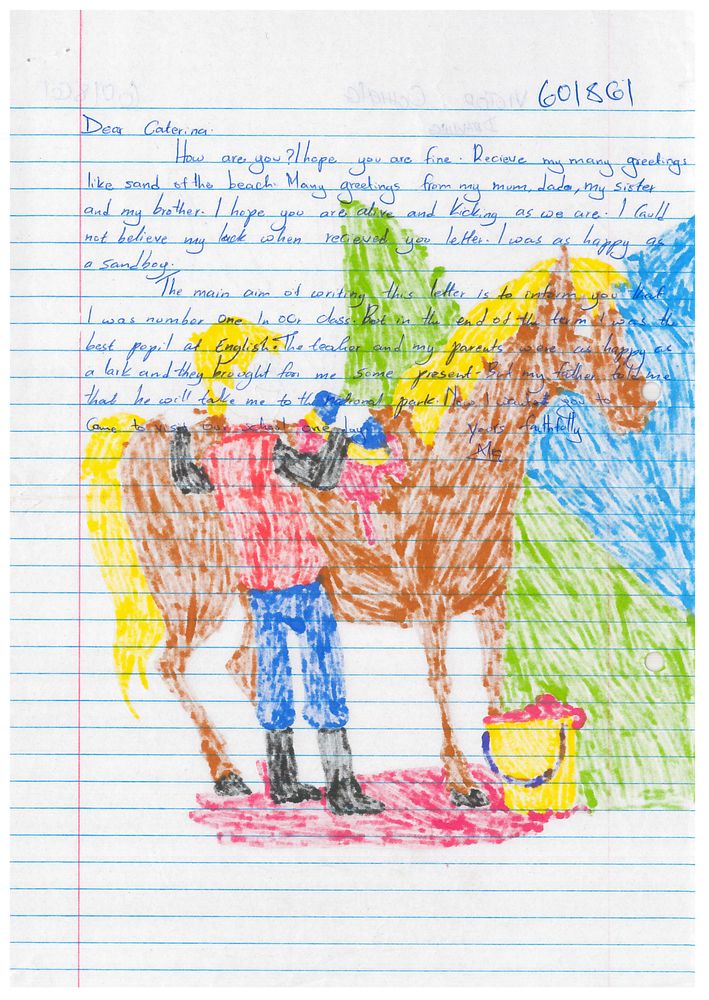 601861
Dear Caterina.
How are you? I hope you are fine. Recieve my many greetings
like sand of the beach. Many greetings from my mum, dada, my sister
and my brother. I hope you are alive and kicking as we are. I Could
not believe my luck when recieved you letter. I was as happy as
a sandboy.
The main aim of writing this letter is to inform you that
I was number one In our class. But in the end of the term I was the
best pupil at English. The teacher and my parents were as happy as
a lark and they brought for me some present. But my father told me
that he will take me to the national park. Now I want you to
Came to visit our school one day. Yours faithfully
Me